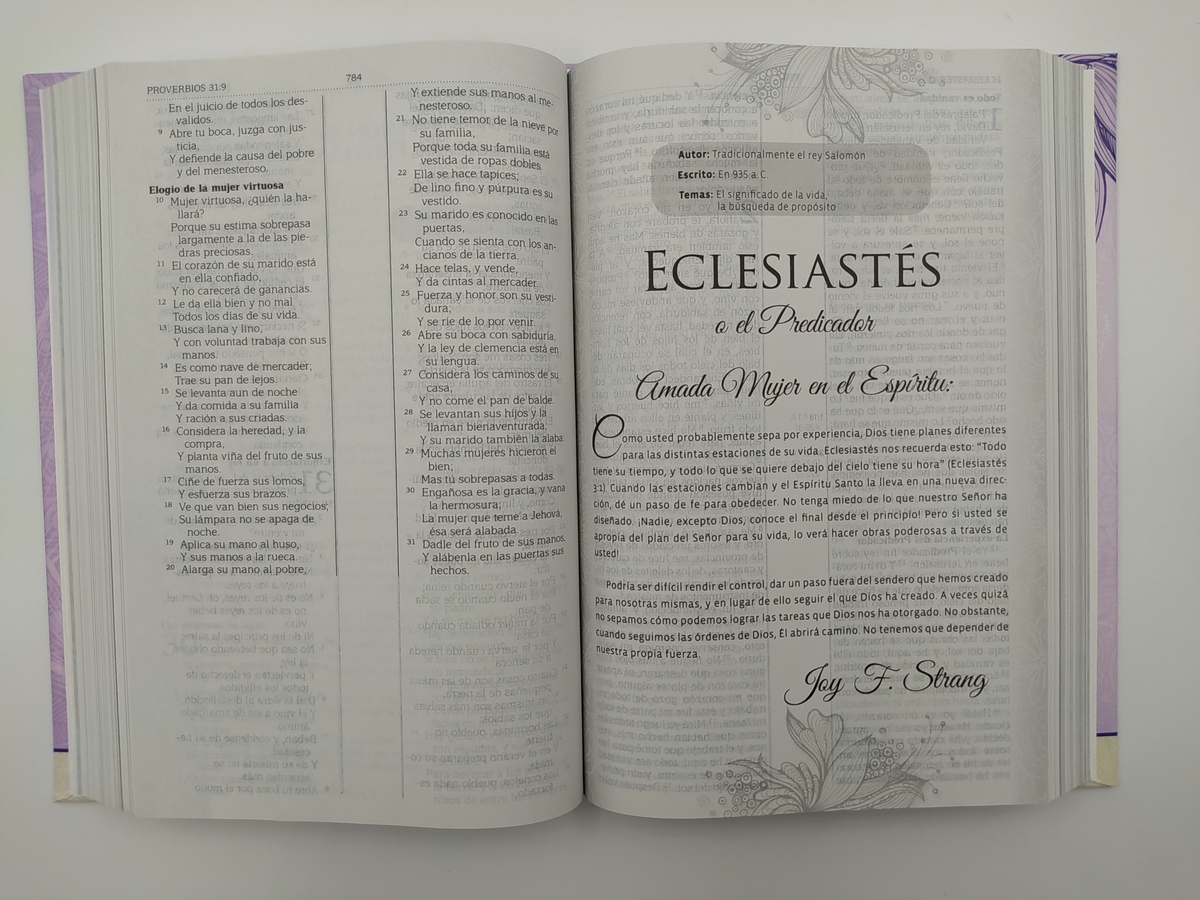 PROVERBIOS 31:9
784
En el juicio de todos los des-
validos.
9 Abre tu boca, juzga con jus-
ticia,
Y defiende la causa del pobre
y del menesteroso.
Elogio de la mujer virtuosa
10 Mujer virtuosa, ¿quién la ha-
llará?
Porque su estima sobrepasa
largamente a la de las pie-
dras preciosas.
11 El corazón de su marido está
en ella confiado,
Y no carecerá de ganancias.
12 Le da ella bien y no mal
Todos los días de su vida.
13 Busca lana y lino,
Y con voluntad trabaja con sus
manos.
14 Es como nave de mercader;
Trae su pan de lejos.
15 Se levanta aun de noche
Y da comida a su familia
Y ración a sus criadas.
16 Considera la heredad, y la
compra,
Y planta viña del fruto de sus
manos.
17 Ciñe de fuerza sus lomos,
Y esfuerza sus brazos.
18 Ve que van bien sus negocios;
Su lámpara no se apaga de
noche.
19 Aplica su mano al huso,
Y sus manos a la rueca.
20 Alarga su mano al pobre,
Y extiende sus manos al me-
nesteroso.
21 No tiene temor de la nieve por
su familia,
Porque toda su familia está
vestida de ropas dobles.
22 Ella se hace tapices;
De lino fino y púrpura es su
vestido.
23 Su marido es conocido en las
puertas,
Cuando se sienta con los an-
cianos de la tierra.
24 Hace telas, y vende,
Y da cintas al mercader.
25 Fuerza y honor son su vesti-
dura;
Y se ríe de lo por venir.
26 Abre su boca con sabiduría,
Y la ley de clemencia está en
su lengua.
27 Considera los caminos de su
casa,
Y no come el pan de balde.
28 Se levantan sus hijos y la
llaman bienaventurada;
Y su marido también la alaba:
29 Muchas mujeres hicieron el
bien;
Mas tú sobrepasas a todas.
30 Engañosa es la gracia, y vana
la hermosura;
La mujer que teme a Jehová,
ésa será alabada.
31 Dadle del fruto de sus manos,
Y alábenla en las puertas sus
hechos.
Autor: Tradicionalmente el rey Salomón
Escrito: En 935 a. C.
Temas: El significado de la vida,
la búsqueda de propósito
ECLESIASTÉS
o el Predicador
Amada Mujer en el Espíritu:
Como usted probablemente sepa por experiencia, Dios tiene planes diferentes
para las distintas estaciones de su vida. Eclesiastés nos recuerda esto: “Todo
tiene su tiempo, y todo lo que se quiere debajo del cielo tiene su hora” (Eclesiastés
3:1). Cuando las estaciones cambian y el Espíritu Santo la lleva en una nueva direc-
ción, dé un paso de fe para obedecer. No tenga miedo de lo que nuestro Señor ha
diseñado. ¡Nadie, excepto Dios, conoce el final desde el principio! Pero si usted se
apropia del plan del Señor para su vida, lo verá hacer obras poderosas a través de
usted!
Podría ser difícil rendir el control, dar un paso fuera del sendero que hemos creado
para nosotras mismas, y en lugar de ello seguir el que Dios ha creado. A veces quizá
no sepamos cómo podemos lograr las tareas que Dios nos ha otorgado. No obstante,
cuando seguimos las órdenes de Dios, Él abrirá camino. No tenemos que depender de
nuestra propia fuerza.
Joy F. Strang